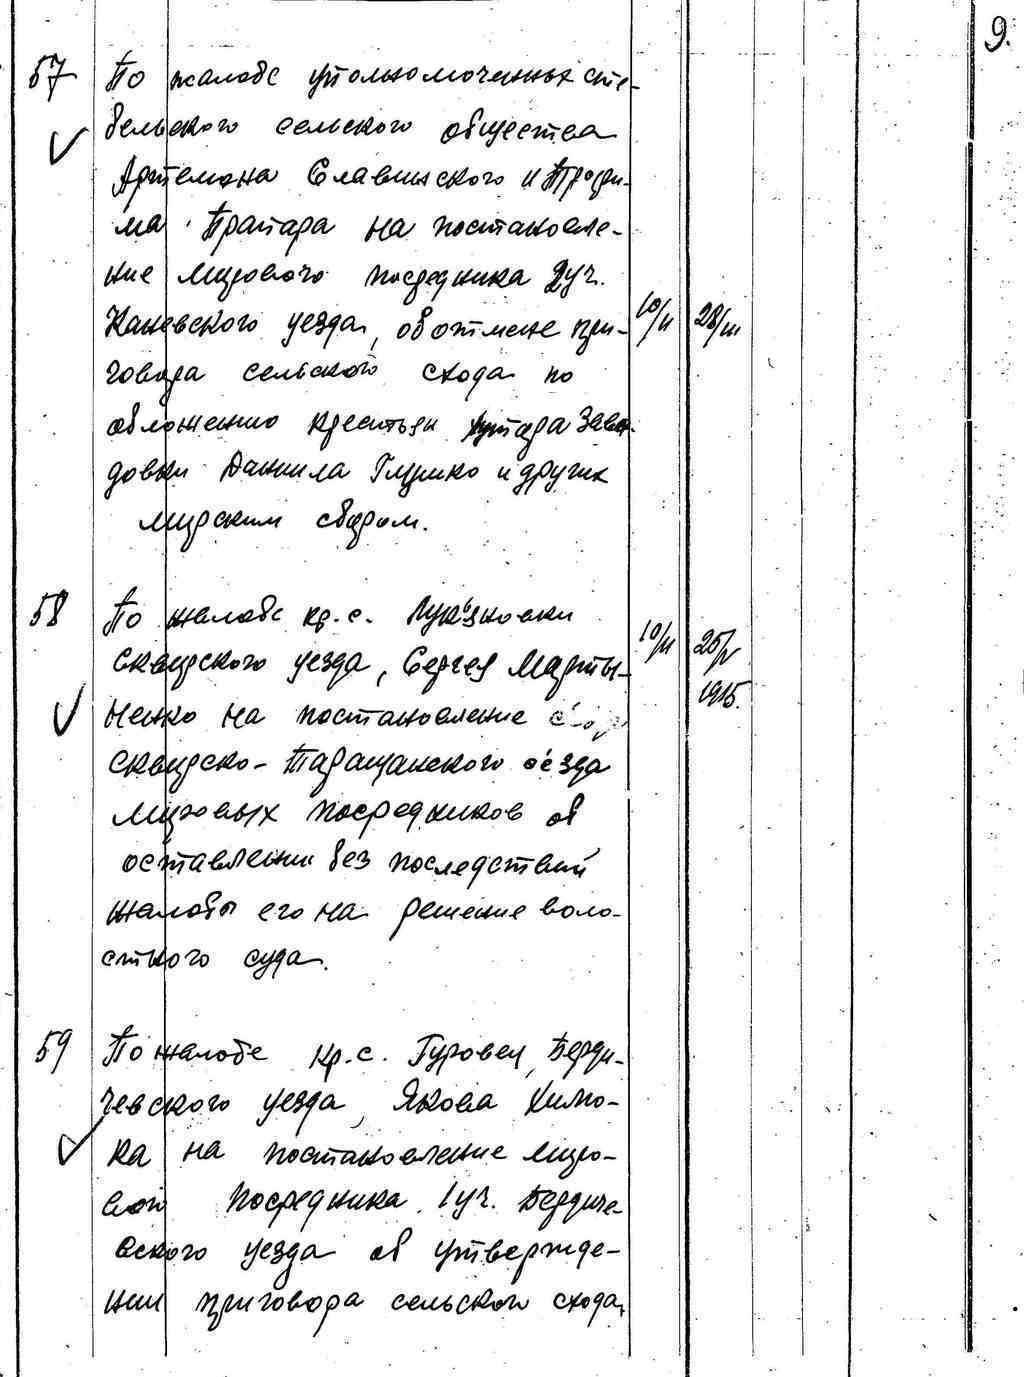 9.
57 По жалобе уполномоченных сте-
бельского сельского общества
Артемона Славинского и Трофи-
ма Прапара на постановле-
ние мирового посредника 2 уч.
Каневского уезда, об отмене при- 10/II 28/III
говора сельского схода по
обложению крестьян хутора Заво-
довки Даниила Глушко и других
мирским сбором.
58 По жалобе кр. с. Лук'яновки
Сквирского уезда, Сергея Марты- 10/II 25/V
ненко на постановление 1915.
Сквирско-Таращанского с'езда
мировых посредников об
оставлении без последствий
жалобы его на решение воло-
стного суда.
59 По жалобе кр. с. Гуровец, Берди-
чевского уезда, Якова Химо-
ка на постановление миро-
вого посредника 1 уч. Бердиче-
вского уезда об утвержде-
нии приговора сельского схода,